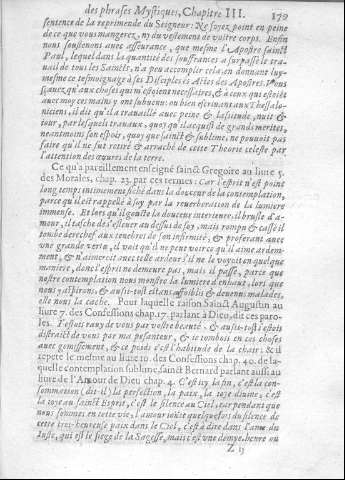 des phrases Mystiques, Chapitre III. 179
sentence de la reprimende du Seigneur: Ne soyez point en peine
de ce que vous mangerez, ny du vestement de vostre corps. Enfin
nous soustenons avec asseurance, que mesme l'Apostre sainct
Paul, lequel dans la quantité des souffrances a surpassé le tra-
uail de tous les Saincts, n'a peu accomplir cela, en donnant luy-
mesme ce tesmoignage à ses Disciples és Actes des Apostres. Vous
sçauez qu'aux choses qui m'estoient necessaires, & à ceux qui estoiẽt
auec moy ces mains y ont subuenu: ou bien escriuant aux Thessalo-
niciens, il dit qu'il a trauaillé auec peine & lassitude, nuit &
iour, par lesquels trauaux, quoy qu'il acquist de grands merites,
neantmoins son espoir, quoy que sainct & sublime, ne pouuoit pas
faire qu'il ne fut retiré & arraché de cette Theorie celeste par
l'attention des œuures de la terre.
Ce qu'a pareillement enseigné sainct Gregoire au liure 5.
des Morales, chap. 23. par ces termes: Car l'esprit n'est point
long temps intimement fiché dans la douceur de la contemplation,
parce qu'il est rappellé à soy par la reuerberation de la lumiere
immense. Et lors qu'il gouste la douceur interieure, il brusle d'a-
mour, il tasche de s'esleuer au dessus de soy, mais rompu & cassé il
tombe derechef aux tenebres de son infirmité, & proferant auec
vne grande vertu, il voit qu'il ne peut voir ce qu'il aime ardem-
ment, & n'aimeroit auec telle ardeur s'il ne le voyoit en quelque
maniere, donc l'esprit ne demeure pas, mais il passe, parce que
nostre contemplation nous monstre la lumiere d'enhaut, lors que
nous y aspirons, & aussi-tost estans affoiblis & deuenus malades,
elle nous la cache. Pour laquelle raison Sainct Augustin au
liure 7. des Confessions chap. 17. parlant à Dieu, dit ces paro-
les. I'estois rauy de vous par vostre beauté, & aussi-tost i'estois
distraict de vous par ma pesanteur, & ie tombois en ces choses
auec gemissement, & ce poids c'est l'habitude de la chair: & il
repete le mesme au liure 10. des Confessions chap. 40. de la-
quelle contemplation sublime, sainct Bernard parlant aussi au
liure de l'Amour de Dieu chap. 4. C'est icy la fin, c'est la con-
sommation (dit-il) la perfection, la paix, la ioye diuine, c'est
la ioye au sainct Esprit, c'est le silence au Ciel, car pendant que
nous sommes en cette vie, l'amour ioüit quelquefois du silence de
cette tres-heureuse paix dans le Ciel, c'est à dire dans l'ame du
Iuste, qui est le siege de la Sagesse, mais c'est vne demye heure ou
Z ij